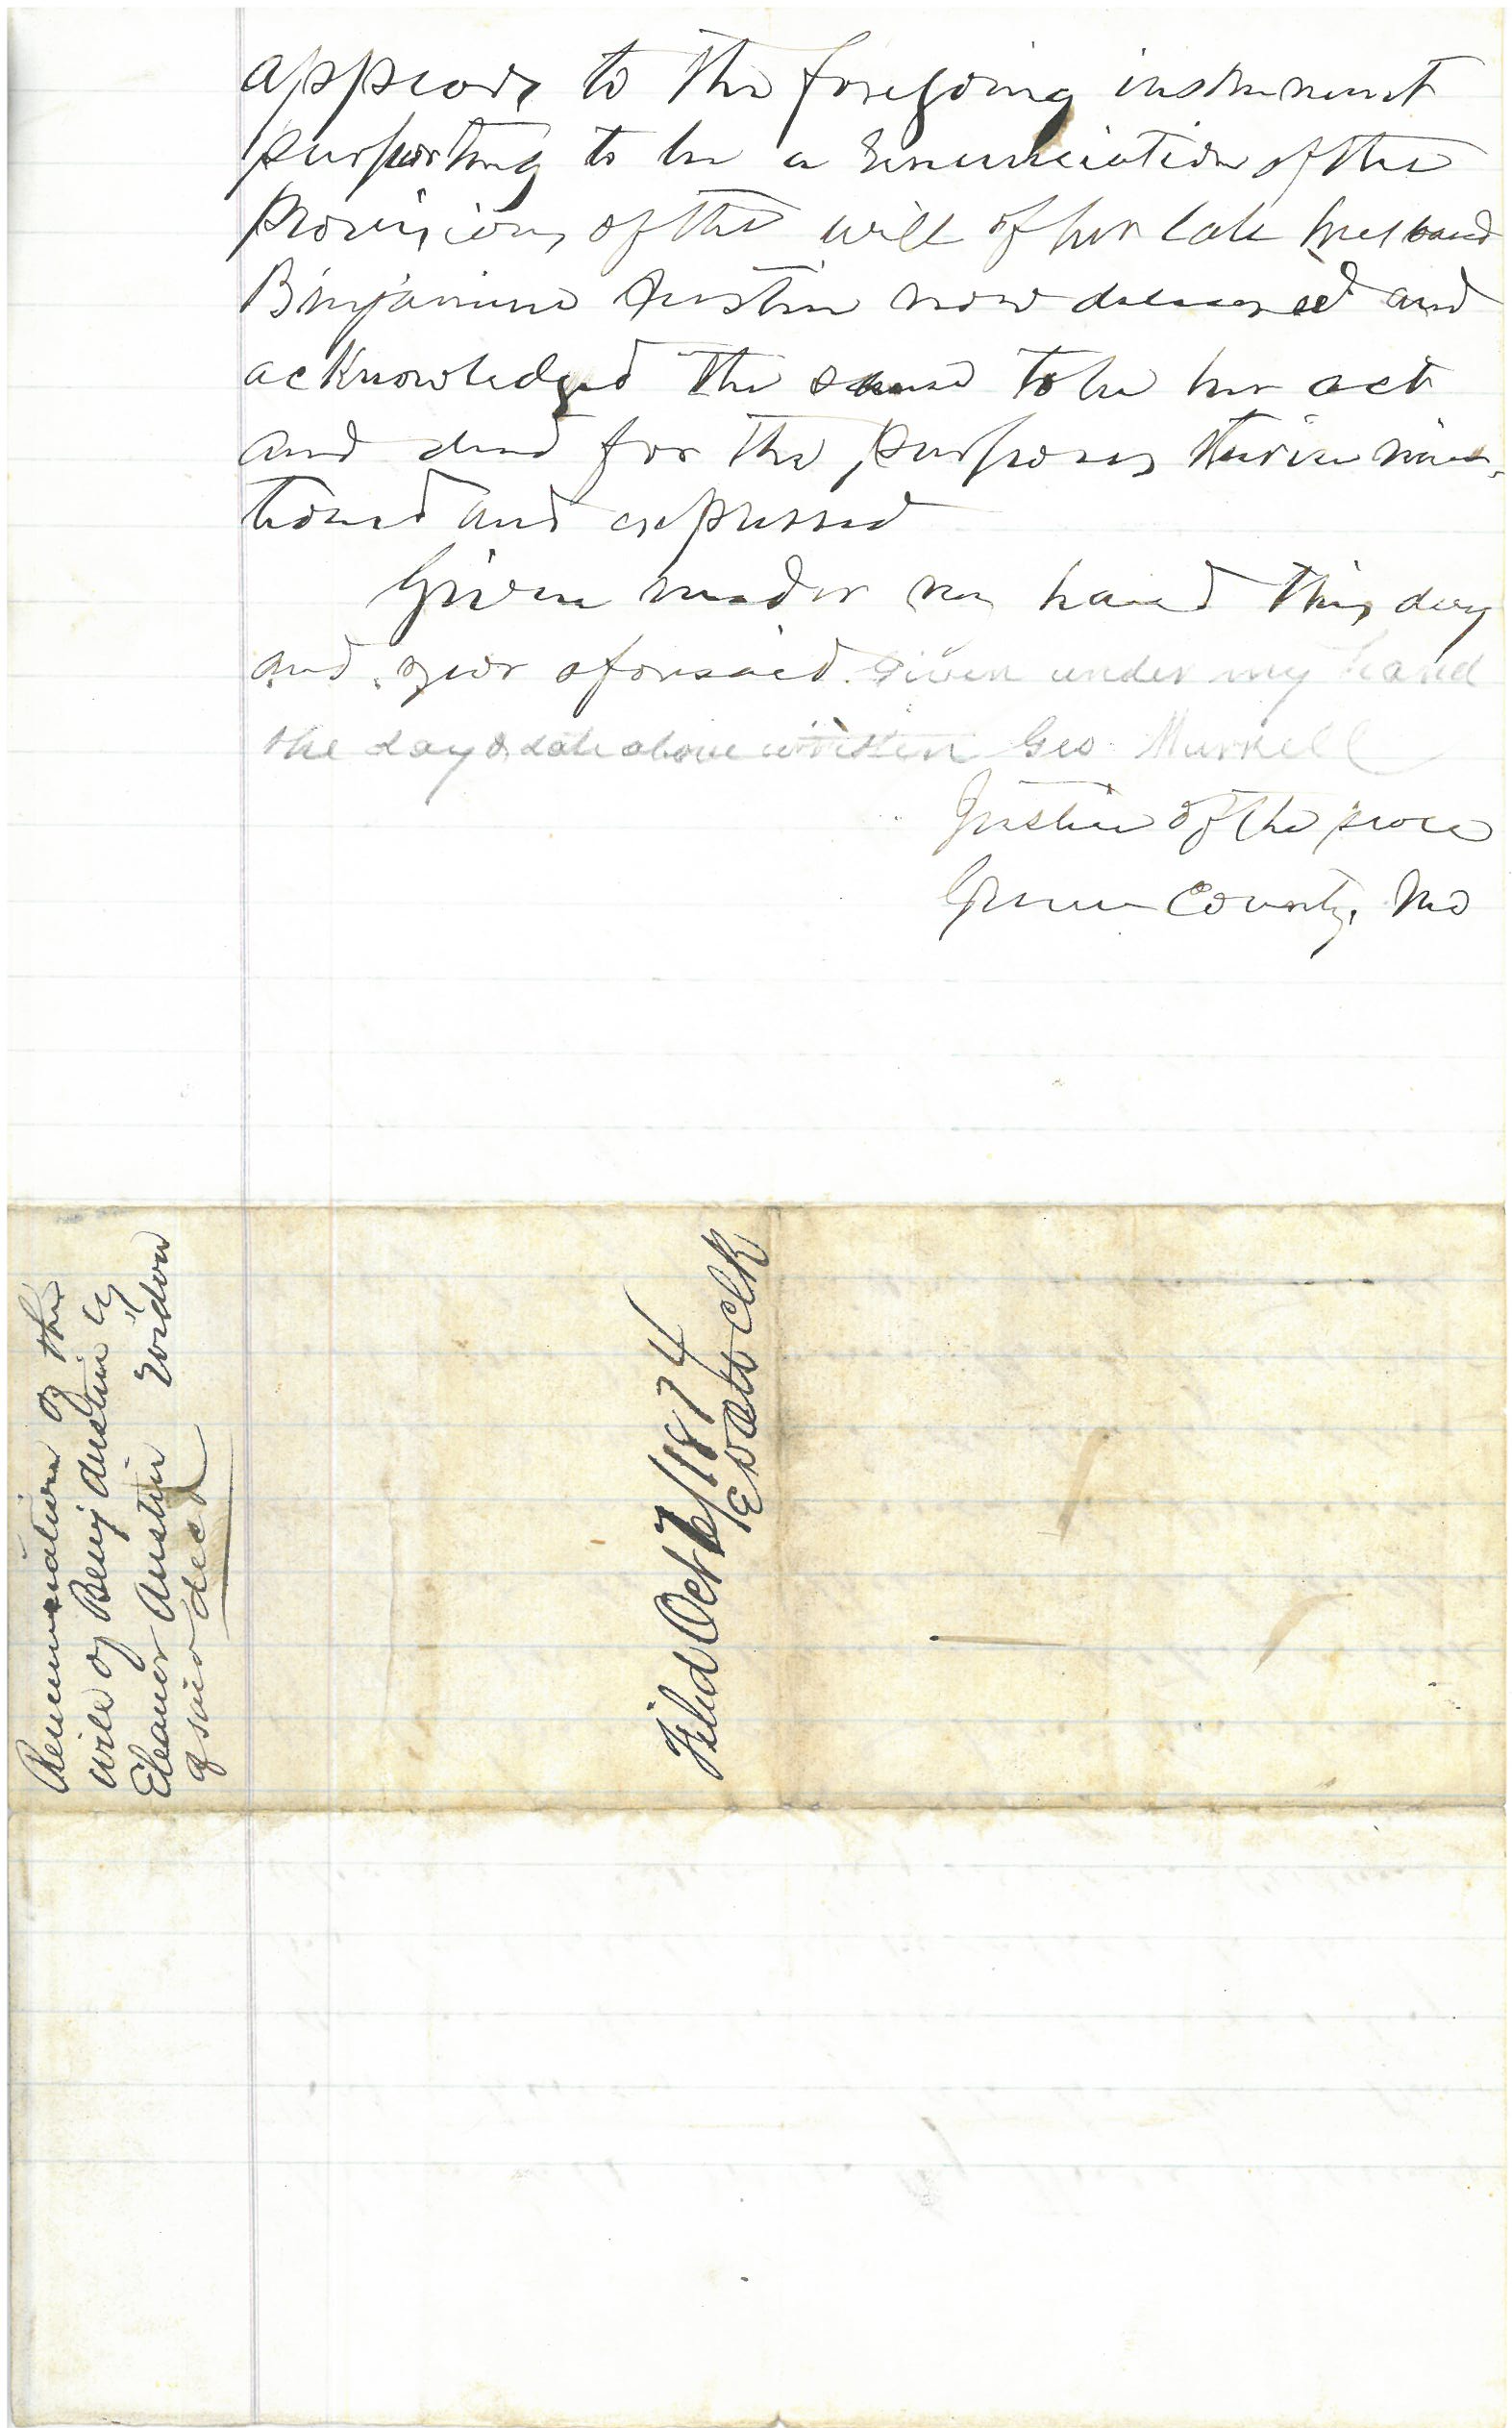 appears to the foregoing instrument
purporting to be a renunciation of the
provisions of the will of her late husband
Binjamine Austin now deceased and
acknowledged the same to be her act
and deed for the purposes therein men-
tioned and expressed
Given under my hand this day
and year aforesaid. Given under my hand
the day & date above written Geo Murrell
Justice of the peace
Greene County, Mo
Renunciation of the
will of Benj Austin by
Eleanor Austin Widow
of said decd
Filed Oct 7/1874
Clk